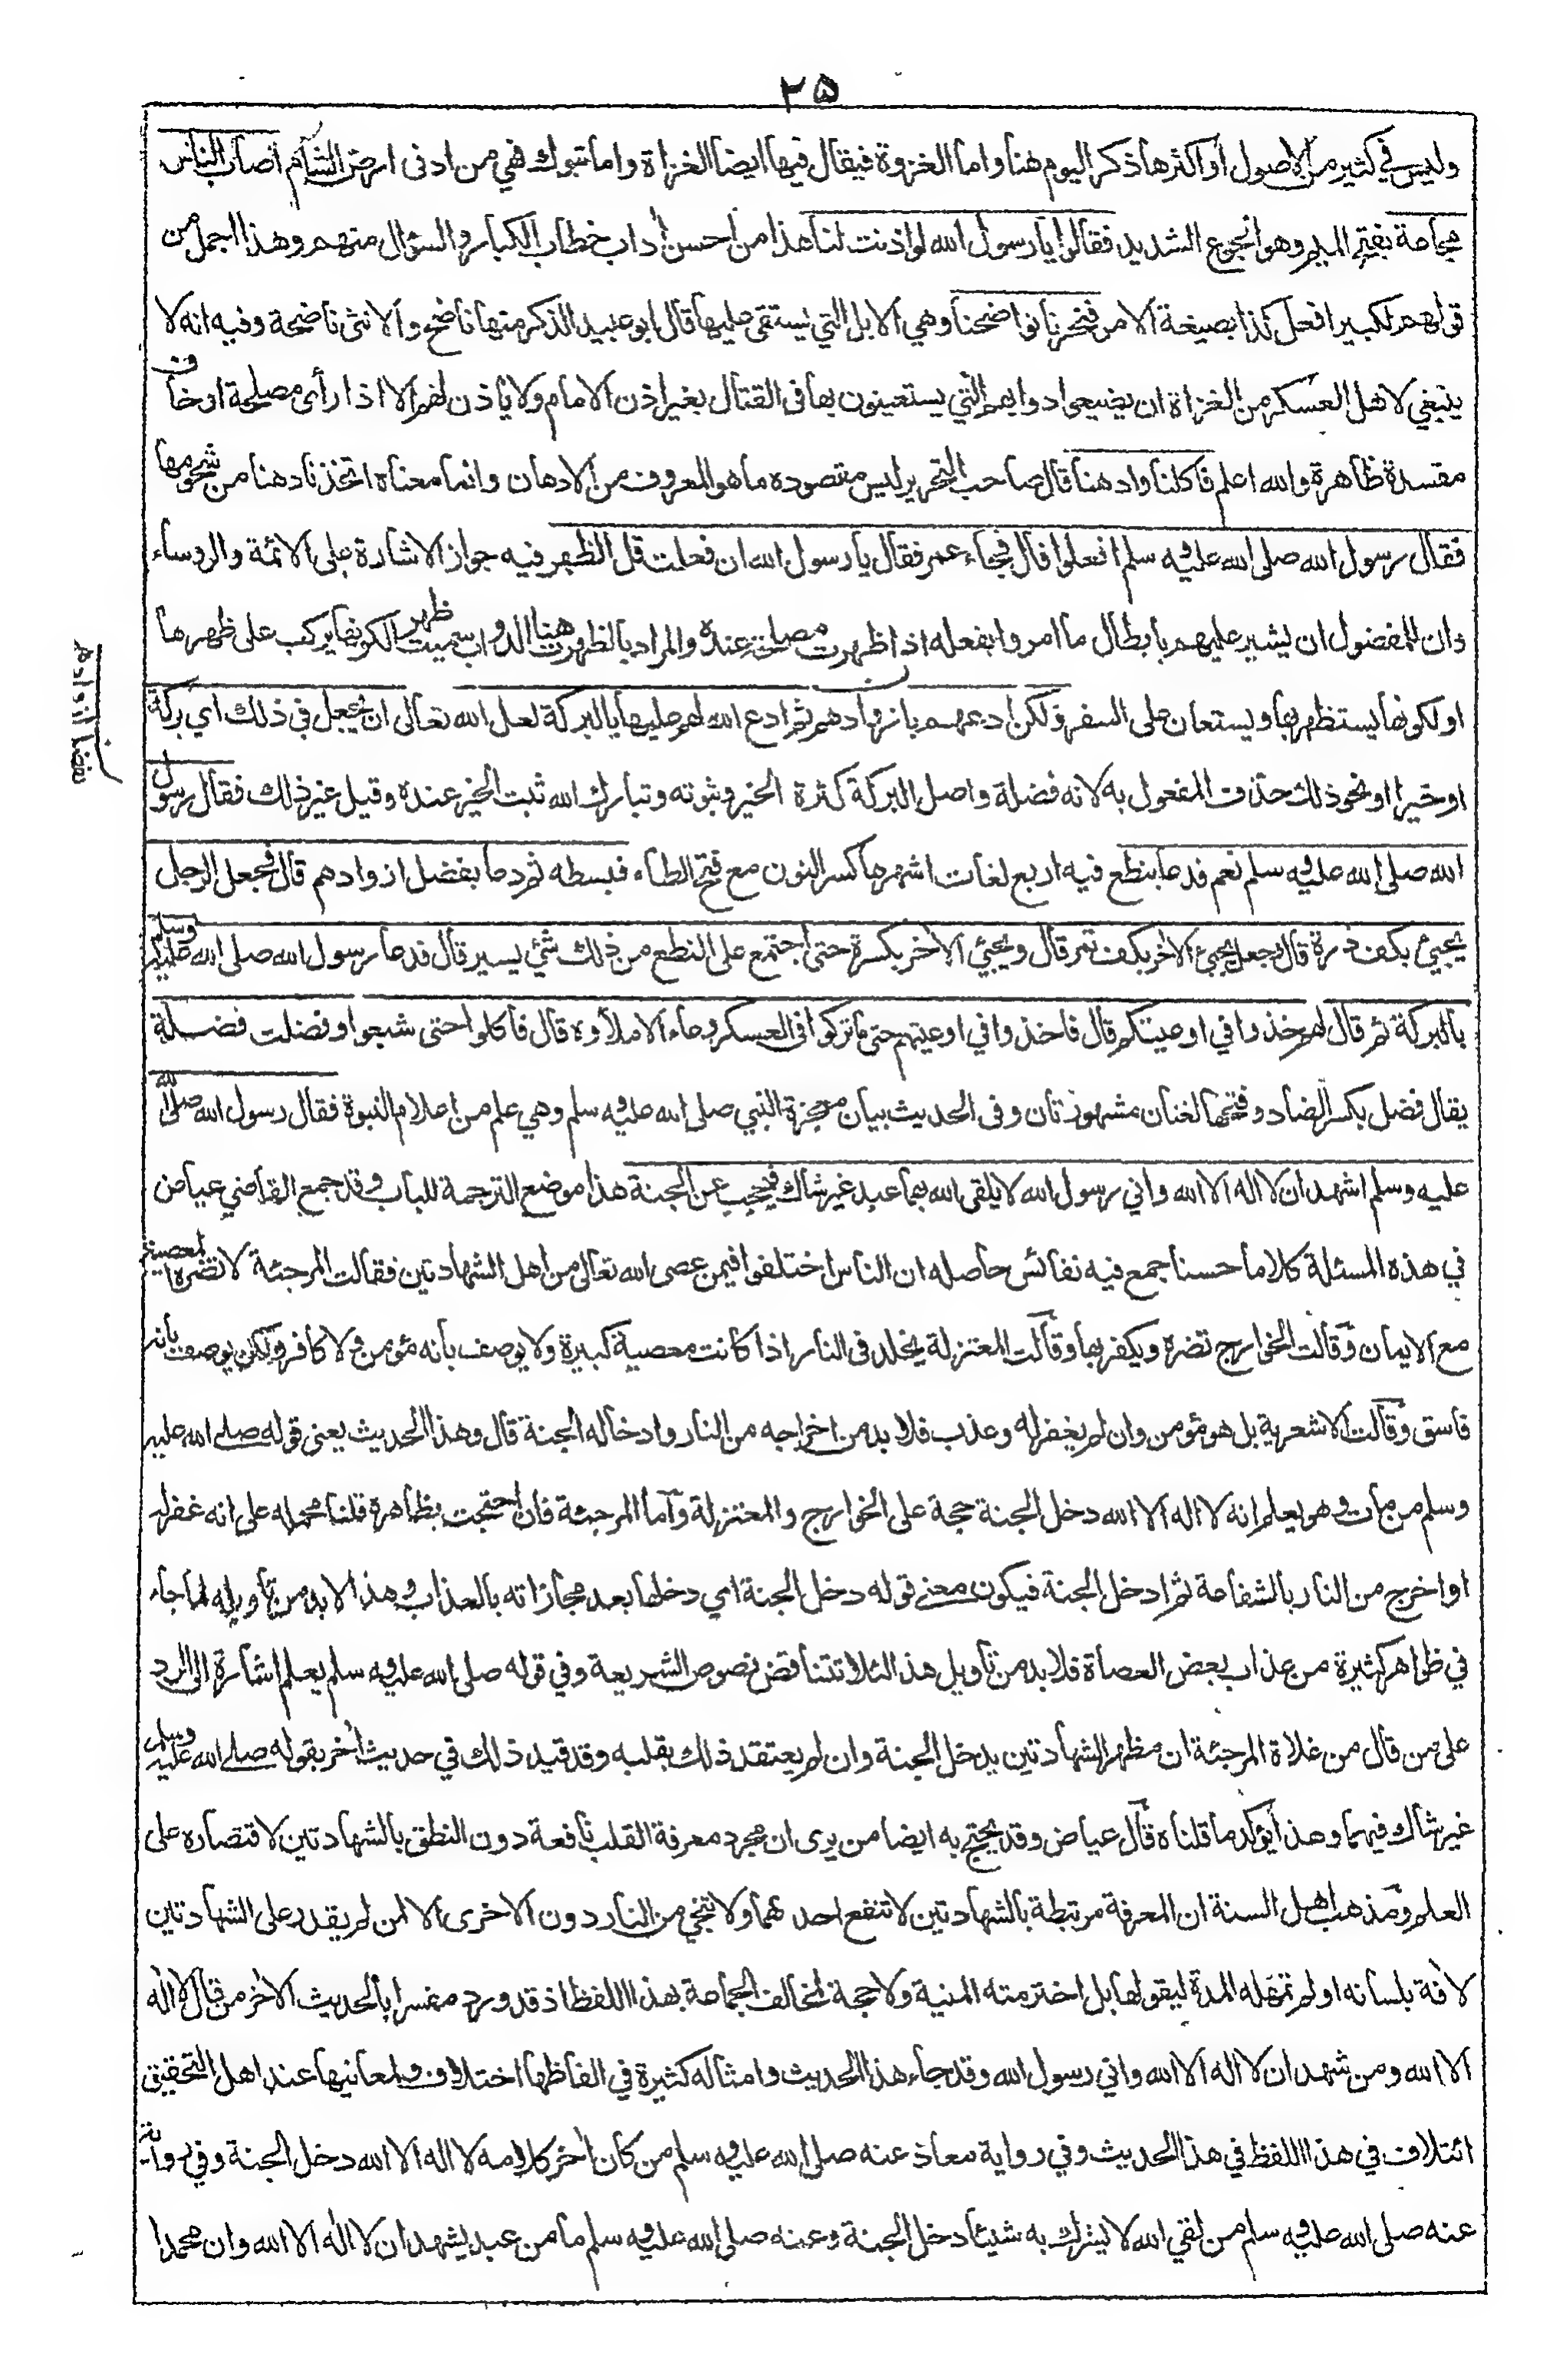 ٢٥
وليس في كثير من الاصول او اكثرها ذكر اليوم هنا واما الغزوة فيقال فيها ايضا الغزاة واما تبوك فهي من ادنى ارض الشام اصاب الناس
مجاعة بفتح الميم وهو الجوع الشديد فقالوا يا رسول الله لو اذنت لنا هذا من احسن اداب خطاب الكبار والسؤال منهم وهذا اجمل من
قولهم لكبير افعل كذا بصيغة الامر فنحرنا نواضحنا وهي الابل التي يستقى عليها قال ابو عبيد الذكر منها ناضح والانثى ناضحة وفيه انه لا
ينبغي لاهل العسكر من الغزاة ان يضيعوا دوابهم التي يستعينون بها في القتال بغير اذن الامام ولا ياذن لهم الا اذا رأى مصلحة او خاف
مفسدة ظاهرة والله اعلم فاكلنا وادهنا قال صاحب التحرير ليس مقصوده ما هو المعروف من الادهان وانما معناه اتخذنا دهنا من شحومها
فقال رسول الله صلى الله عليه وسلم افعلوا قال فجاء عمر فقال يا رسول الله ان فعلت قل الظهر فيه جواز الاشارة على الائمة والروساء
وان للمفضول ان يشير عليهم بابطال ما امروا بفعله اذا ظهرت مصلحة عنده والمراد بالظهر هنا الدواب سميت ظهرا لكونها يركب على ظهرها
او لكونها يستظهر بها ويستعان على السفر ولكن ادعهم بازوادهم ثم ادع الله لهم عليها بالبركة لعل الله تعالى ان يجعل في ذلك اي بركة
او خيرا او نحو ذلك حذف المفعول به لانه فضلة واصل البركة كثرة الخير وثبوته وتبارك الله ثبت الخير عنده وقيل غير ذلك فقال رسول
الله صلى الله عليه وسلم نعم فدعا بنطع فيه اربع لغات اشهرها كسر النون مع فتح الطاء فبسطه ثم دعا بفضل ازوادهم قال فجعل الرجل
يجيئ بكف ذرة قال فجعل يجيئ الاخر بكف تمر قال ويجيئ الاخر بكسرة حتى اجتمع على النطع من ذلك شئ يسير قال فدعا رسول الله صلى الله عليه وسلم
بالبركة ثم قال لهم خذوا في اوعيتكم قال فاخذوا في اوعيتهم حتى ما تركوا في العسكر وعاء الا ملأوه قال فاكلوا حتى شبعوا وفضلت فضلة
يقال فضل بكسر الضاد وفتحها لغتان مشهورتان وفي الحديث بيان معجزة النبي صلى الله عليه وسلم وهي علم من اعلام النبوة فقال رسول الله صلى الله
عليه وسلم اشهد ان لا اله الا الله واني رسول الله لا يلقى الله بهما عبد غير شاك فيحجب عن الجنة هذا موضع الترجمة للباب وقد جمع القاضي عياض
في هذه المسئلة كلاما حسنا جمع فيه نفائس حاصله ان الناس اختلفوا فيمن عصى الله تعالى من اهل الشهادتين فقالت المرجئة لا تضره المعصية
مع الايمان وقالت الخوارج تضره ويكفر بها وقالت المعتزلة يخلد في النار اذا كانت معصية كبيرة ولا يوصف بانه مؤمن ولا كافر ولكن يوصف بانه
فاسق وقالت الاشعرية بل هو مؤمن وان لم يغفر له وعذب فلا بد من اخراجه من النار وادخاله الجنة قال وهذا الحديث يعنى قوله صلى الله عليه
وسلم من مات وهو يعلم انه لا اله الا الله دخل الجنة حجة على الخوارج والمعتزلة وأما المرجئة فان احتجت بظاهره قلنا محمله على انه غفر له
او اخرج من النار بالشفاعة ثم ادخل الجنة فيكون معنى قوله دخل الجنة اي دخلها بعد مجازاته بالعذاب وهذا لا بد من تأويله لما جاء
في ظواهر كثيرة من عذاب بعض العصاة فلا بد من تأويل هذا لئلا تتناقض نصوص الشريعة وفي قوله صلى الله عليه وسلم يعلم اشارة الى الرد
على من قال من غلاة المرجئة ان مظهر الشهادتين يدخل الجنة وان لم يعتقد ذلك بقلبه وقد قيد ذلك في حديث اخر بقوله صلى الله عليه وسلم
غير شاك فيهما وهذا يؤكد ما قلناه قال عياض وقد يحتج به ايضا من يرى ان مجرد معرفة القلب نافعة دون النطق بالشهادتين لاقتصاره على
العلم ومذهب اهل السنة ان المعرفة مرتبطة بالشهادتين لا تنفع احدهما ولا تنجي من النار دون الاخرى الا لمن لم يقدر على الشهادتين
لافة بلسانه او لم تمهله المدة ليقولها بل اخترمته المنية ولا حجة لمخالف الجماعة بهذا اللفظ اذ قد ورد مفسرا بالحديث الاخر من قال لا اله
الا الله ومن شهد ان لا اله الا الله واني رسول الله وقد جاء هذا الحديث وامثاله كثيرة في الفاظها اختلاف ولمعانيها عند اهل التحقيق
ائتلاف في هذا اللفظ في هذا الحديث وفي رواية معاذ عنه صلى الله عليه وسلم من كان اخر كلامه لا اله الا الله دخل الجنة وفي رواية
عنه صلى الله عليه وسلم من لقي الله لا يشرك به شيئا دخل الجنة وعنه صلى الله عليه وسلم ما من عبد يشهد ان لا اله الا الله وان محمدا